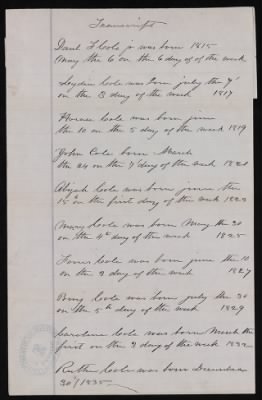 Transcript
Danl H Cole jr was born 1815
May the 6 on the 6 day of of the week
Leyden Cole was born july the 9
on the 3 day of the week 1817
Horace Cole was born june
the 10 on the 5 day of the week 1819
John Cole born March
the 24 on the 7 day of the week 1821
Abijah Cole was born june the
15th on the first day of the week 1823
Mary Cole was born May the 30
on the 4th day of the week 1825
Cole was born june the 10
on the 3 day of the week 1827
Cole was born july the 30
on the 5th day of the week 1829
Caroline Cole was born March the
first on the 3 day of the week 1832
Ruth Cole was born December
30th/1835